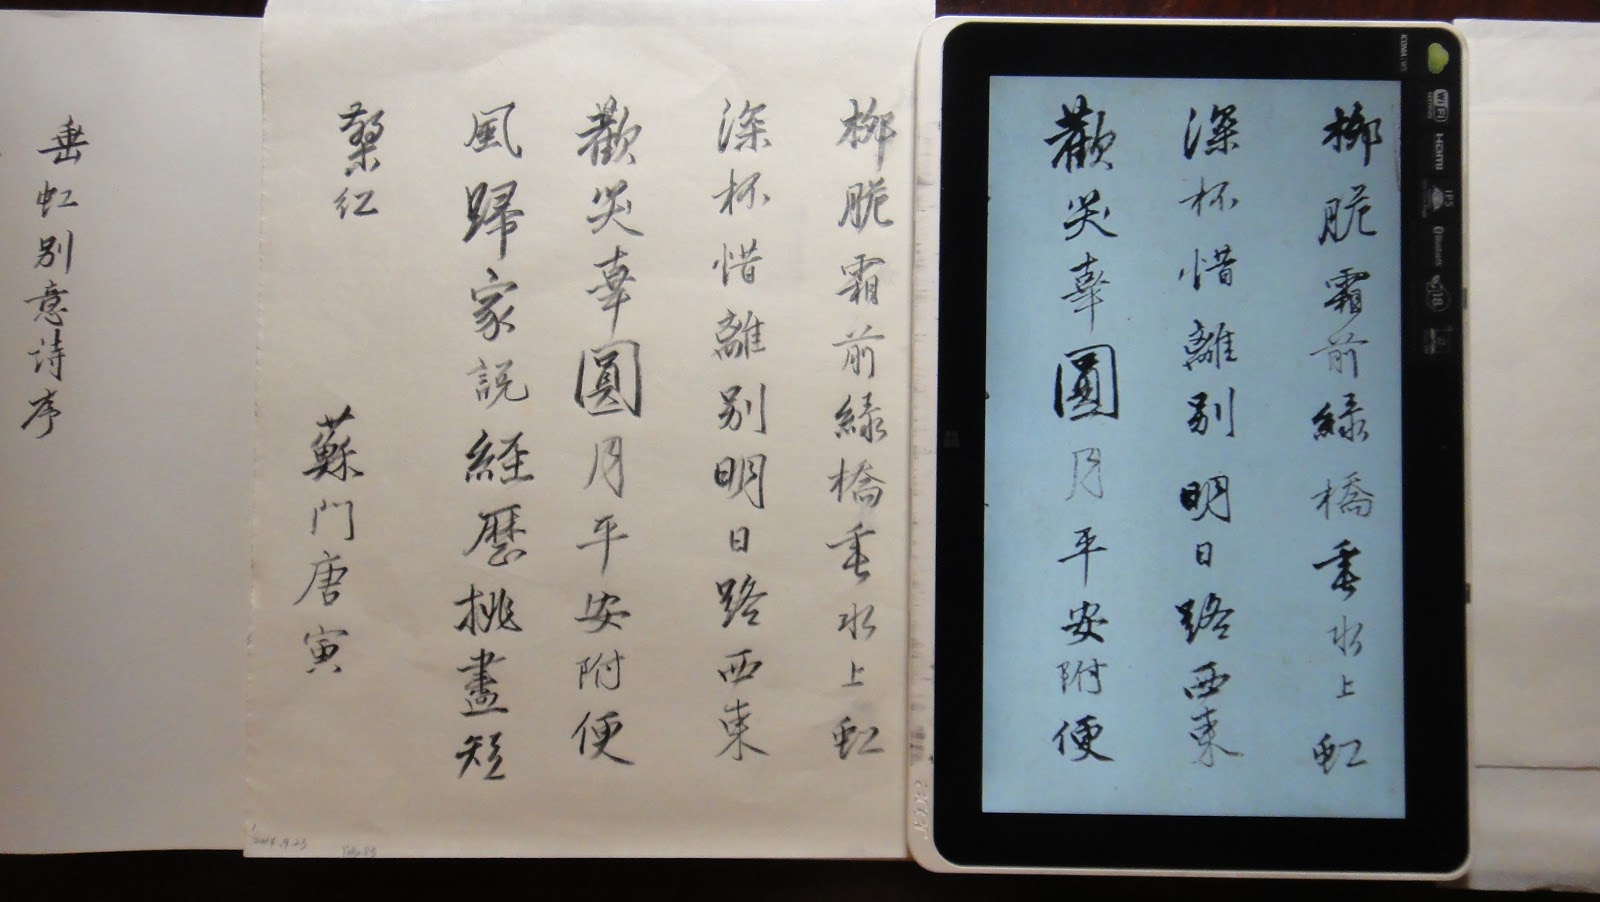 柳脆霜前綠橋垂水上虹
深杯惜離別明日路西東
歡笑幸圓月平安附便
風歸家說經歷挑盡短
檠紅
蘇門唐寅
垂虹別意詩序
柳脆霜前綠橋垂水上虹
深杯惜離別明日路西東
歡笑幸圓月平安附便
acer
WiFi
HDMI
IPS
Bluetooth